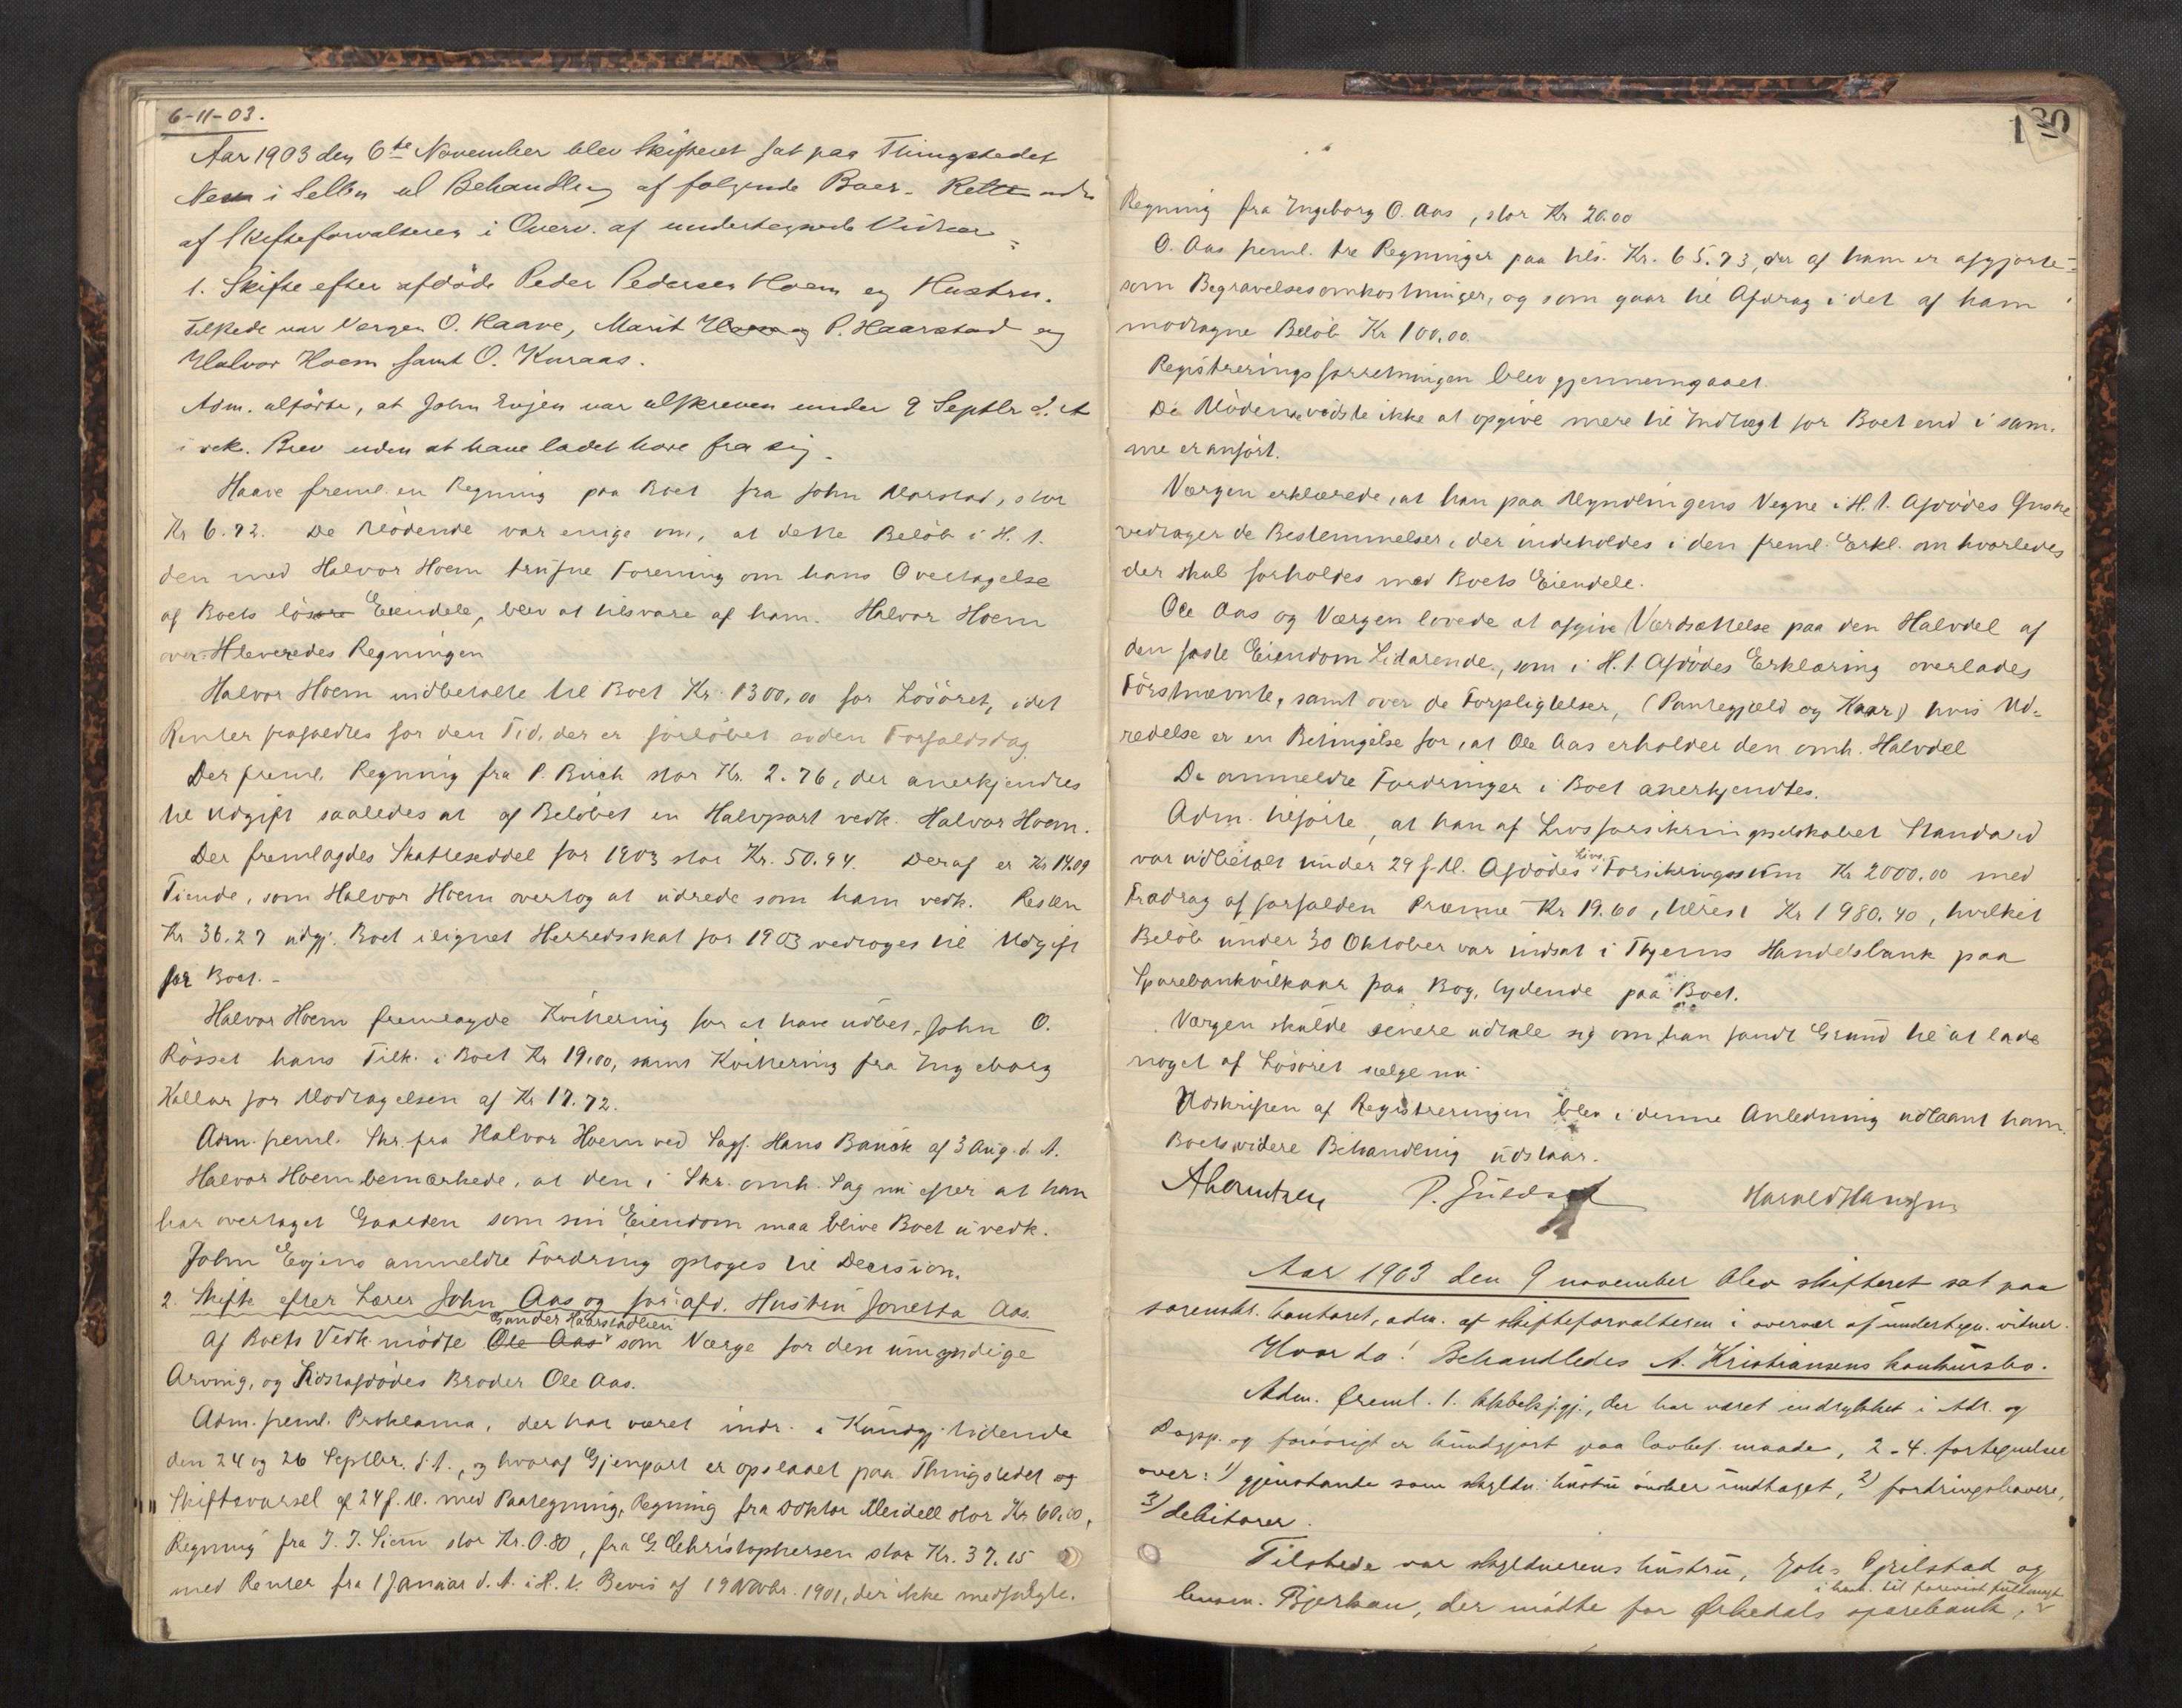 6-11-03.
Aar 1903 den 6te November blev Skifteret sat paa Thingstedet
i Selbu til Behandling af følgende Boer. Rette
af Skifteforvalteren i Overv. af undertegnede Vidner
1. Skifte efter afdøde Peder Pedersen Hoem og Hustru.
Tilstede var Vergen O. Haave, Marit P. Haarstad og
Halvor Hoem samt O. Kuraas.
Adm. alførte, at John Evjen var tilskreven under 9 Septbr d. A
i rek. Brev uden at have ladet høre fra sig.
Haave freml. en Regning paa Boet fra John Marstad, stor
Kr 6.72. De Mødende var enige om, at dette Beløb i H. t.
den med Halvor Hoem trufne Forening om hans Overtagelse
af Boets løsøre Eiendele, blev at tilsvare af ham. Halvor Hoem
over-H leveredes Regningen
Halvor Hoem indbetalte til Boet Kr. 1300,00 for Løsøret, idet
Renter frafaldtes for den Tid, der er forløbet siden Forfaldsdag.
Der freml. Regning fra P. Birch stor Kr. 2.76, der anerkjendtes
til Udgift saaledes at af Beløbet en Halvpart vedk. Halvor Hoem.
Der fremlagdes Skatteseddel for 1903 stor Kr. 50.94. Deraf er Kr 14.09
Tiende, som Halvor Hoem overtog at udrede som ham vedk. Resten
Kr 36.27 udgj. Boet ilignet Herredsskat for 1903 vedtoges til Udgift
for Boet. -
Halvor Hoem fremlagde Kvittering for at have udbet. John O.
Røsset hans Tilk. i Boet Kr 19,00, samt Kvittering fra Ingeborg
Kallar for Modtagelsen af Kr 17.72.
Adm. freml. Skr. fra Halvor Hoem ved Sagf. Hans Bauck af 3 Aug. d. A.
Halvor Hoem bemærkede, at den i Skr. omh. Sag nu efter at han
har overtaget Gaarden som sin Eiendom maa blive Boet uvedk.
John Evjens anmeldte Fordring optoges til Decision.
2. Skifte efter Lærer John Aas og før afd. Hustru Jonetta Aas.
Gunder Haarstadlien
Af Boets Vedk mødte Ole Aas som Værge for den umyndige
Arving, og Sidstafdødes Broder Ole Aas.
Adm. freml. Proklama, der har været indr. i Kundgj. tidende
den 24 og 26 Septbr. d. A., og hvoraf Gjenpart er opslaaet paa Thingstedet og
Skiftevarsel af 24 f. M. med Paategning, Regning fra Doktor Meidell stor Kr 60.00,
Regning fra J. J. Siem stor Kr. 0.80, fra G. Christophersen stor Kr. 37.15
med Renter fra 1 Januar d. A. i H. t. Bevis af 19 Novbr. 1901, der ikke medfulgte.
130
Regning fra Ingeborg O. Aas, stor Kr 20.00
O. Aas freml. tre Regninger paa tils. Kr. 65.73, der af ham er afgjorte
som Begravelsesomkostninger, og som gaar til Afdrag i det af ham
modtagne Beløb Kr 100.00.
Registreringsforretningen blev gjennemgaaet.
De Mødende vidste ikke at opgive mere til Indtægt for Boet end i sam.
me er anført.
Værgen erklærede, at han paa Myndlingens Vegne i H. t. Afdødes Ønske
vedtager de Bestemmelser, der indeholdes i den freml. Erkl. om hvorledes
der skal forholdes med Boets Eiendele.
Ole Aas og Værgen lovede at afgive Værdsættelse paa den Halvdel af
den faste Eiendom Lidarende, som i H. t Afdødes Erklæring overlades
Førstnævnte, samt over de Forpligtelser, (Pantegjæld og Kaar) hvis Ud-
redelse er en Betingelse for, at Ole Aas erholder den omh. Halvdel
De anmeldte Fordringer i Boet anerkjendtes.
Adm. tilførte, at han af Livsforsikringsselskabet Standard
Livs-
var udbetalt under 29 f. M. Afdødes Forsikringssum Kr 2000.00 med
Fradrag af forfalden Præmie Kr 19.60, tilrest Kr 1980.40, hvilket
Beløb under 30 Oktober var indsat i Thjems Handelsbank paa
Sparebankvilkaar paa Bog, lydende paa Boet.
Værgen skulde senere udtale sig om han fandt Grund til at lade
noget af Løsøret sælge nu
Udskriften af Registreringen blev i denne Anledning udlaant ham.
Boets videre Behandling udstaar.
Harald Hansen
Aar 1903 den 9 november blev skifteret sat paa
sorenskr. kontoret, adm. af skifteforvalteren i overvær af undertegn. vitner.
Hvor da! Behandledes A. Kristiansens konkursbo.
Adm. freml. 1. bekj.gj., der har været indrykket i Adr. og
Dagsp. og forøvrigt er kundgjort paa lovbef. maade, 2-4. fortegnelse
over: 1) gjenstande som skyldn. hustru ønsker undtaget, 2) fordringshavere,
3) debitorer.
Tilstede var skyldnerens hustru, Johs Gjilstad og
i henh. til forevist fuldmagt
lensm. Bjerkan, der møtte for Ørkedals sparebank,